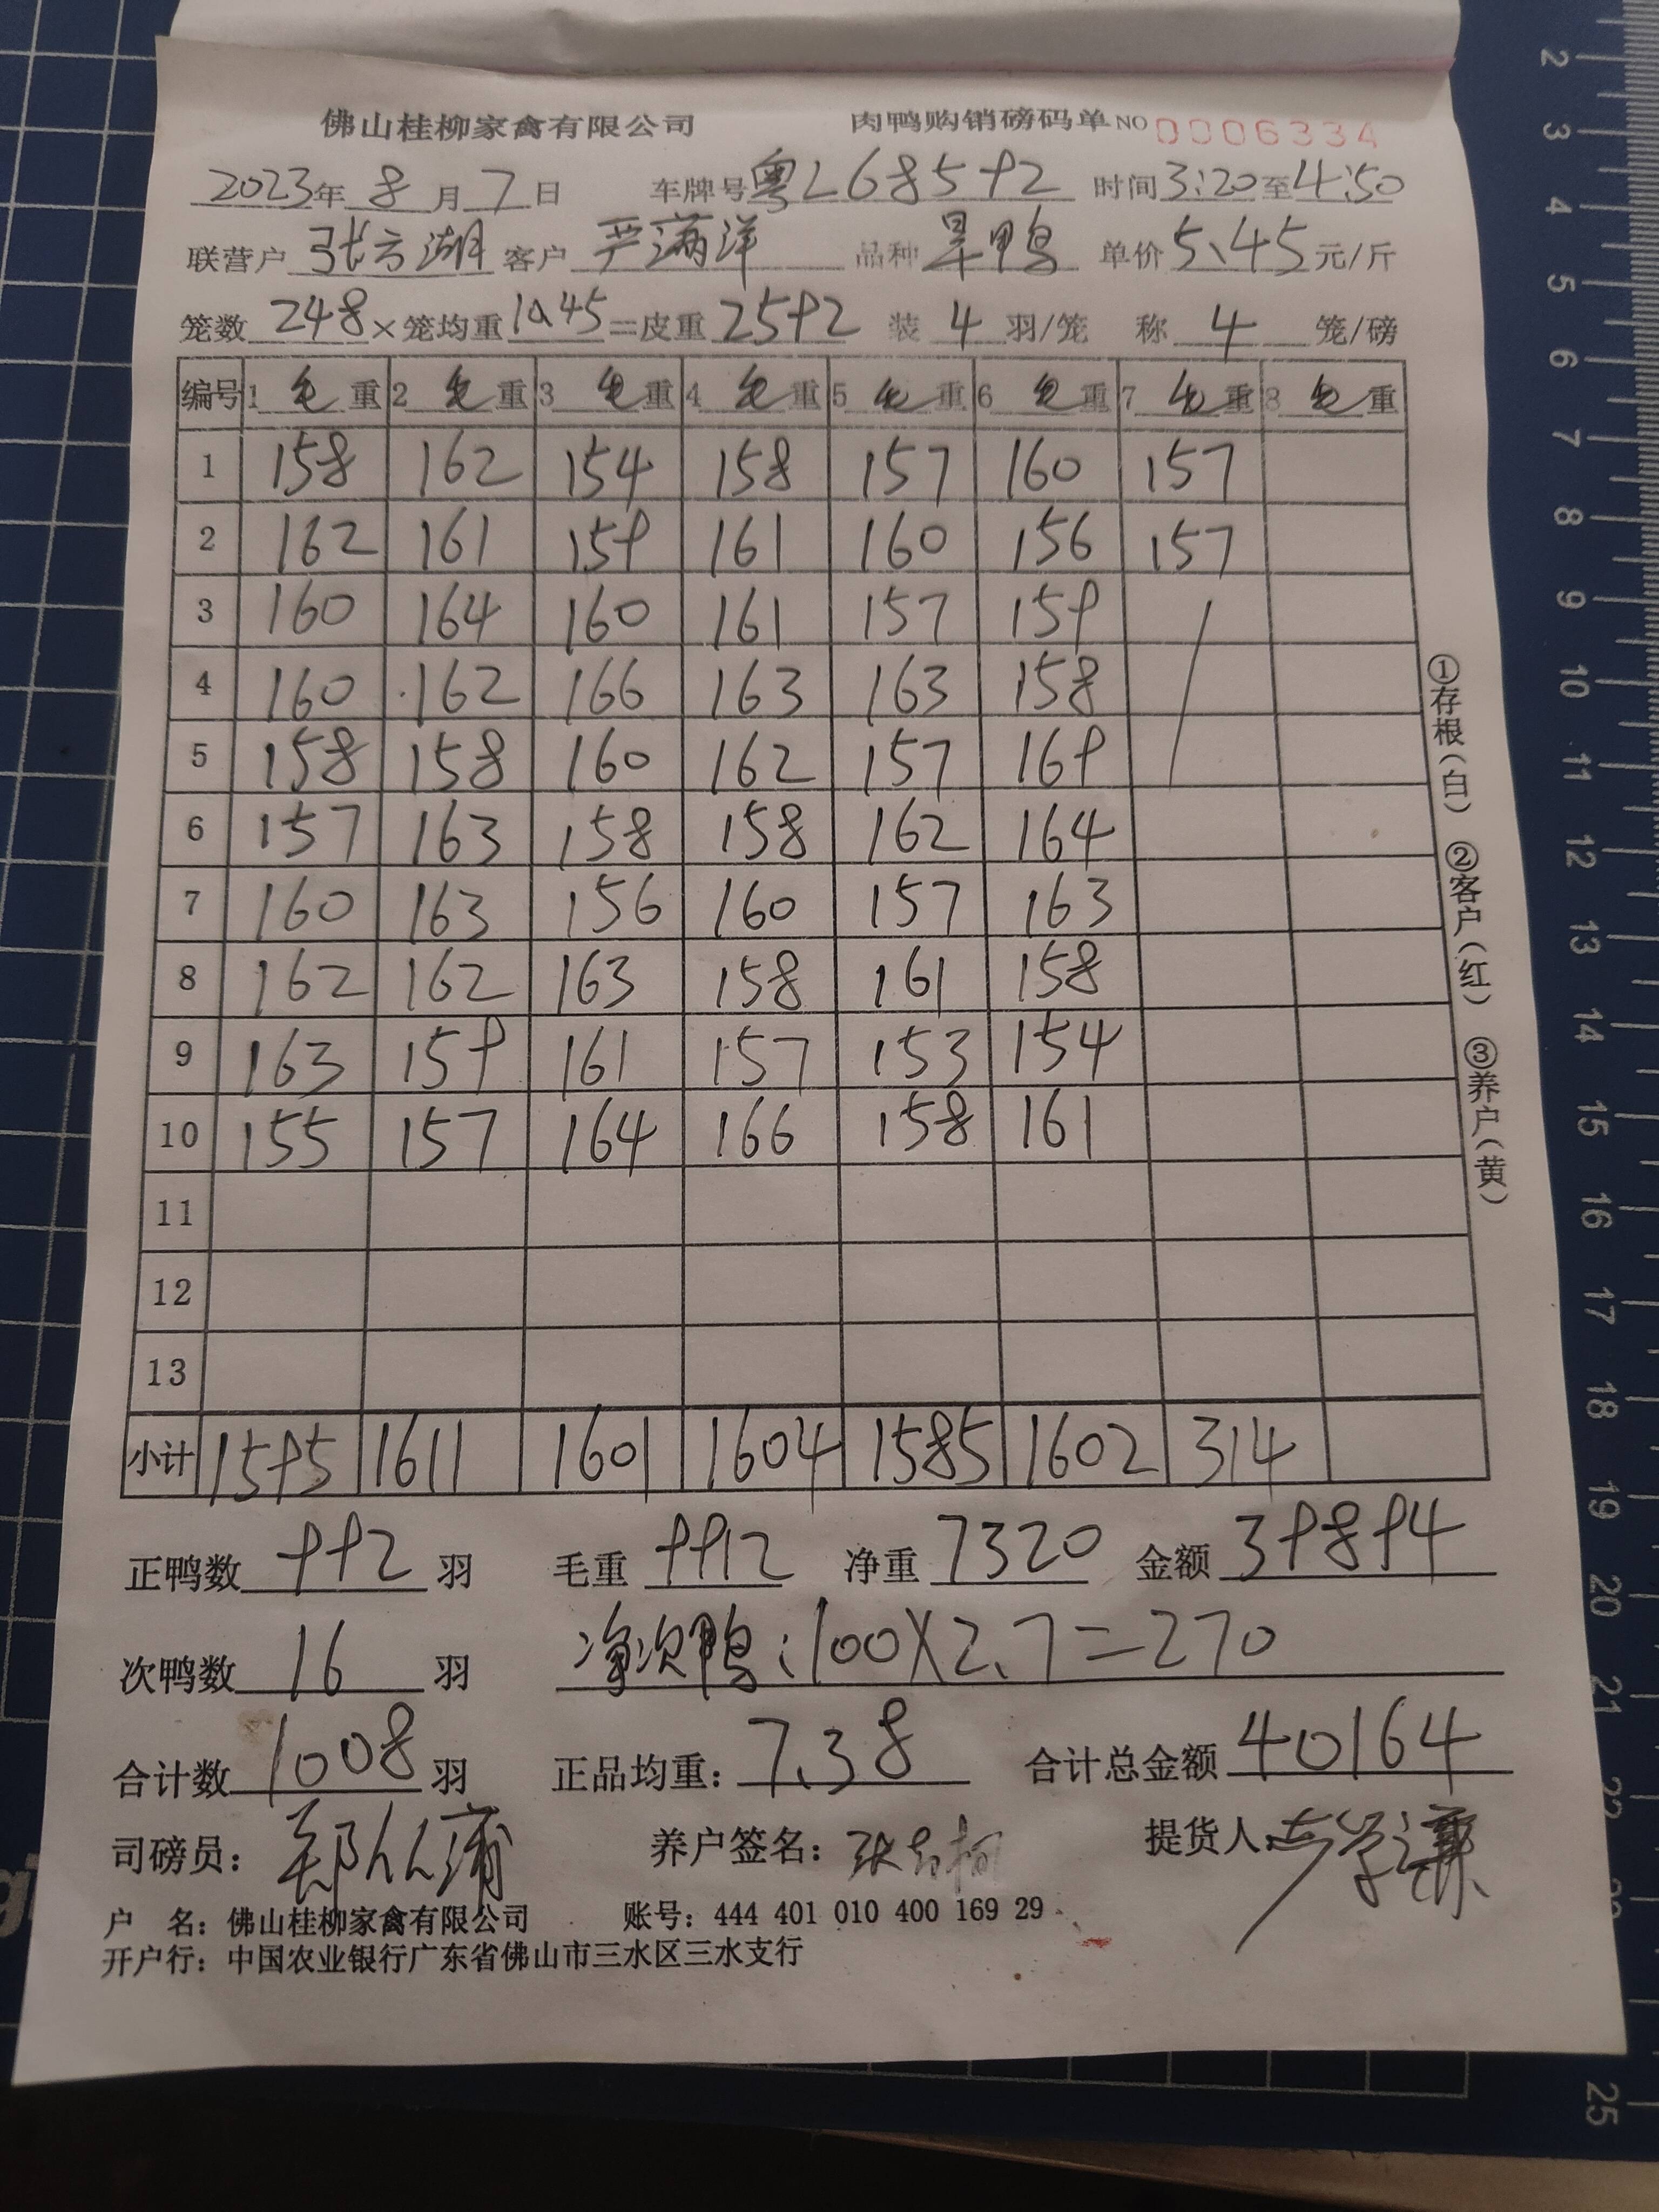 佛山桂柳家禽有限公司 肉鸭购销磅码单 NO 0006334
2023年 8 月 7 日 车牌号 粤L68592 时间 3:20 至 4:50
联营户 张方湖 客户 严满洋 品种 旱鸭 单价 5.45 元/斤
笼数 248 × 笼均重 10.45 = 皮重 2592 装 4 羽/笼 称 4 笼/磅
编号 1 毛重 2 毛重 3 毛重 4 毛重 5 毛重 6 毛重 7 毛重 8 毛重
1 158 162 154 158 157 160 157
2 162 161 159 161 160 156 157
3 160 164 160 161 157 159
4 160 162 166 163 163 158
5 158 158 160 162 157 169
6 157 163 158 158 162 164
7 160 163 156 160 157 163
8 162 162 163 158 161 158
9 163 159 161 157 153 154
10 155 157 164 166 158 161
11
12
13
小计 1595 1611 1601 1604 1585 1602 314
①存根(白) ②客户(红) ③养户(黄)
正鸭数 992 羽 毛重 9912 净重 7320 金额 39894
次鸭数 16 羽 净次鸭:100×2.7=270
合计数 1008 羽 正品均重: 7.38 合计总金额 40164
司磅员: 养户签名: 提货人:
户 名: 佛山桂柳家禽有限公司 账号: 444 401 010 400 169 29
开户行: 中国农业银行广东省佛山市三水区三水支行
2
3
4
5
6
7
8
9
10
11
12
13
14
15
16
17
18
19
20
21
22
25